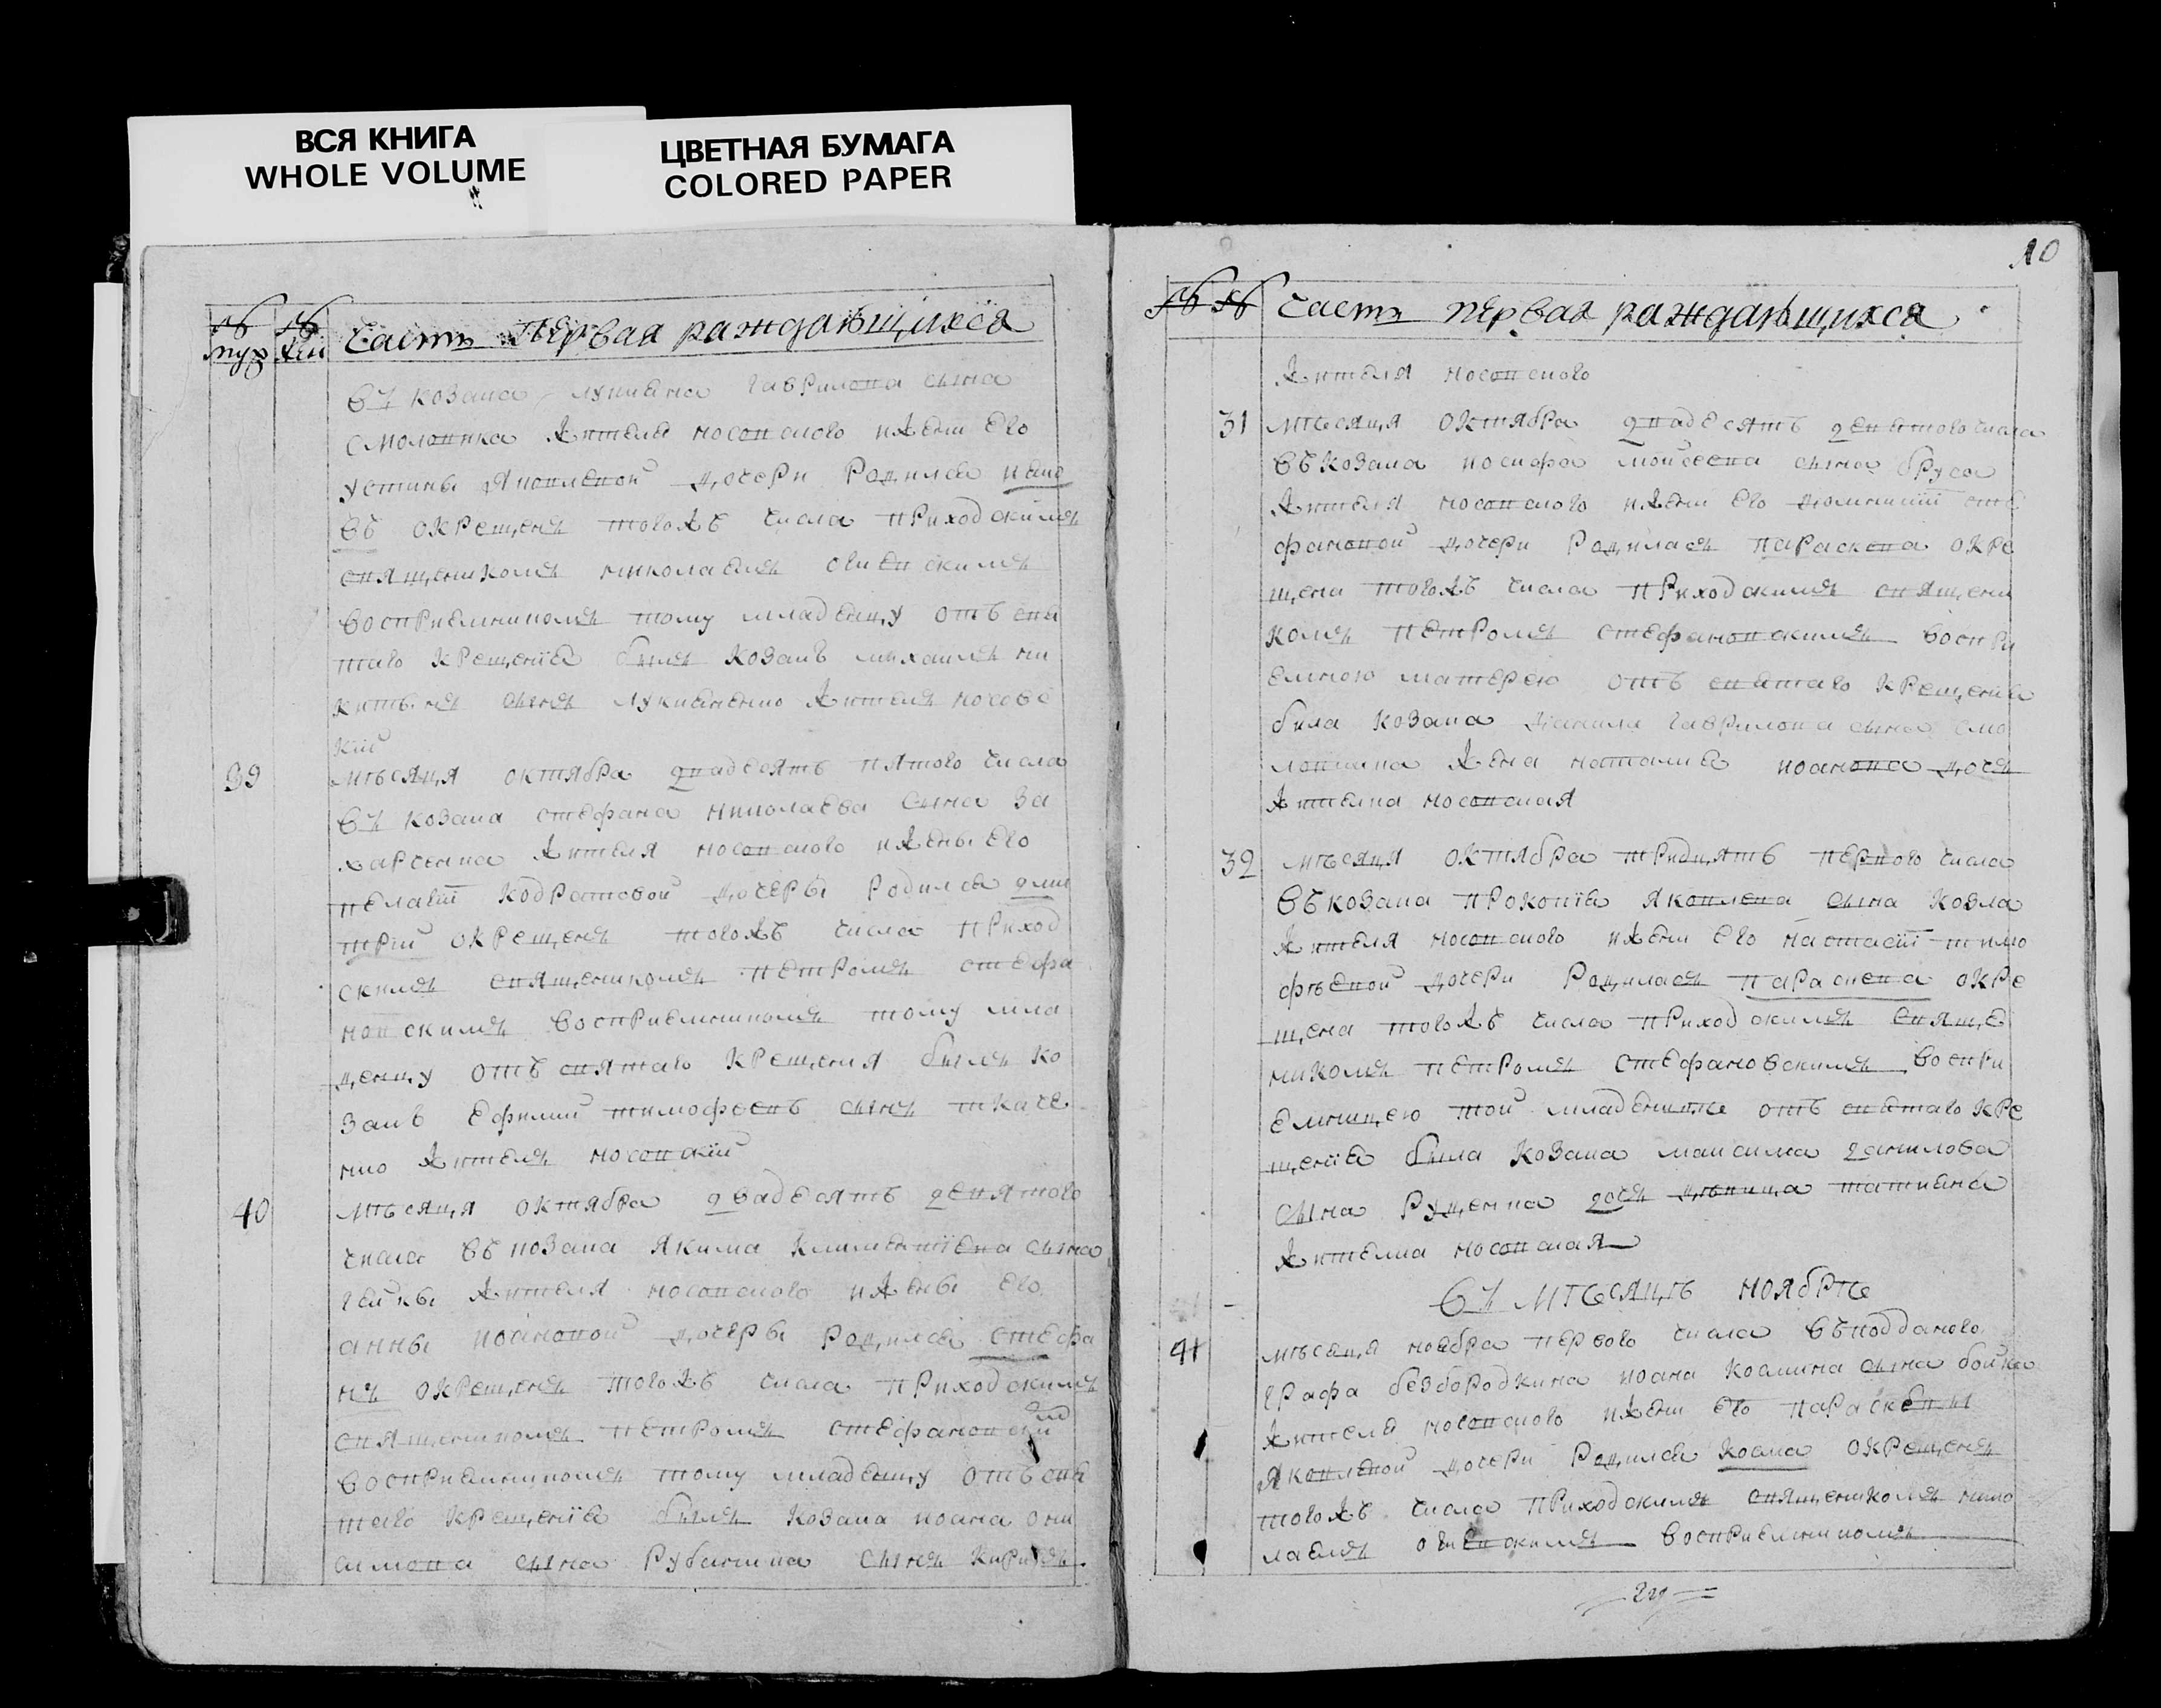 ВСЯ КНИГА
WHOLE VOLUME
ЦВЕТНАЯ БУМАГА
COLORED PAPER
№ №
муж жен
Часть Первая раждающихся
въ козака Лукиана Гаврилова сына
Смоловика жителя носовского и жени его
Устины Яковлевой дочери родился
въ окрещенъ того жъ числа приходскимъ
священикомъ Николаемъ
восприемникомъ тому младенцу отъ свя
таго крещениа былъ козакъ Михаилъ Ни
китинъ сынъ Лукиененко жителъ носовс
кій
39
мѣсяця октября двадесять пятого числа
въ козака Стефана Николаева сина За
харсенка жителя носовского и жены его
Пелагіи Кодратовой дочеры родился Дми
трій окрещенъ того жъ числа приход
скимъ священикомъ Петромъ Стефа
новскимъ восприемникомъ тому мла
денцу отъ святаго крещения былъ ко
закъ Ефимий Тимофеевъ сынъ Ткаче
нко жителъ носовскій
40
мѣсяця октября двадесять девятого
числа въ козака Якима Климентіева сына
жителя носовского и жены его
Анны Иоановой дочеры родился Стефа
нъ окрещенъ того жъ числа приходскимъ
священикомъ Петромъ Стефановским
восприемникомъ тому младенцу отъ свя
таго крещениа былъ козака Иоана Они
симова сына Рубаника сынъ Кирилъ
10
№ №
Часть первая раждающихся
жителя носовского
31
мѣсяця октября двадесять девятого числа
въ козака Иосифа Мойсеева сына Бруса
жителя носовского и жени его Домникіи Сте
фановой дочери родиласъ Параскева окре
щена того жъ числа приходскимъ священи
комъ Петромъ Стефановскимъ воспри
емною матерею отъ святаго крещениа
била козака Данила Гаврилова сына Смо
ловика жена Наталиа Иоанова дочъ
жителка носовская
32
мѣсяця октября тридцять первого числа
въ козака Прокопіа Яковлева сына Козла
жителя носовского и жени его Настасіи Тимо
фѣевой дочери родиласъ Параскева окре
щена того жъ числа приходскимъ свяще
никомъ Петромъ Стефановскимъ воспри
емницею той младеницѣ отъ святаго кре
щеніа была козака Максима Данилова
сына Руденка дочъ дѣвица Татиана
жителка носовская
въ мѣсяцѣ ноябрѣ
41
мѣсяця ноября первого числа въ подданого
графа Безбородкина Иоана Космина сына Бойка
жителя носовского и жени его Параскевы
Яковлевой дочери родился Косма окрещенъ
того жъ числа приходскимъ священикомъ Нико
лаемъ восприемникомъ